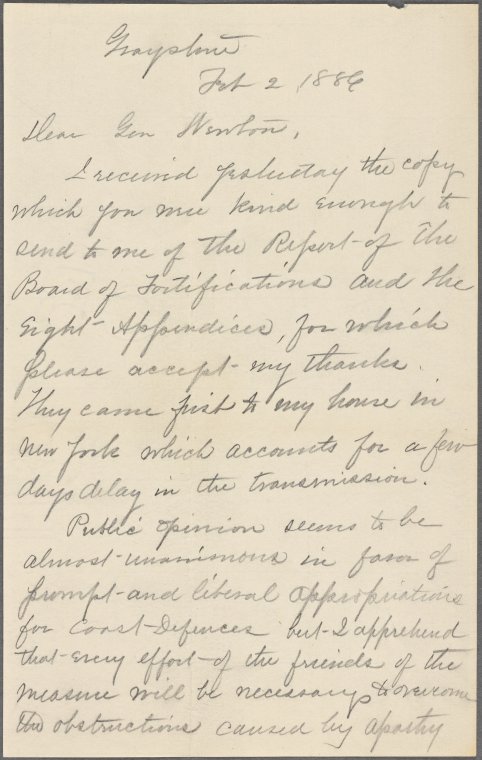 Graystone
Feb 2, 1886
Dear Gen Newton,
I received yesterday the copy
which you were kind enough to
send to me of the Report of the
Board of Fortifications and the
Eight Appendices, for which
please accept my thanks.
They came first to my house in
New York which accounts for a few
days delay in the transmission.
Public opinion seems to be
almost unanimous in favor of
prompt and liberal appropriations
for Coast Defences but I apprehend
that every effort of the friends of the
measure will be necessary to overcome
the obstructions caused by apathy